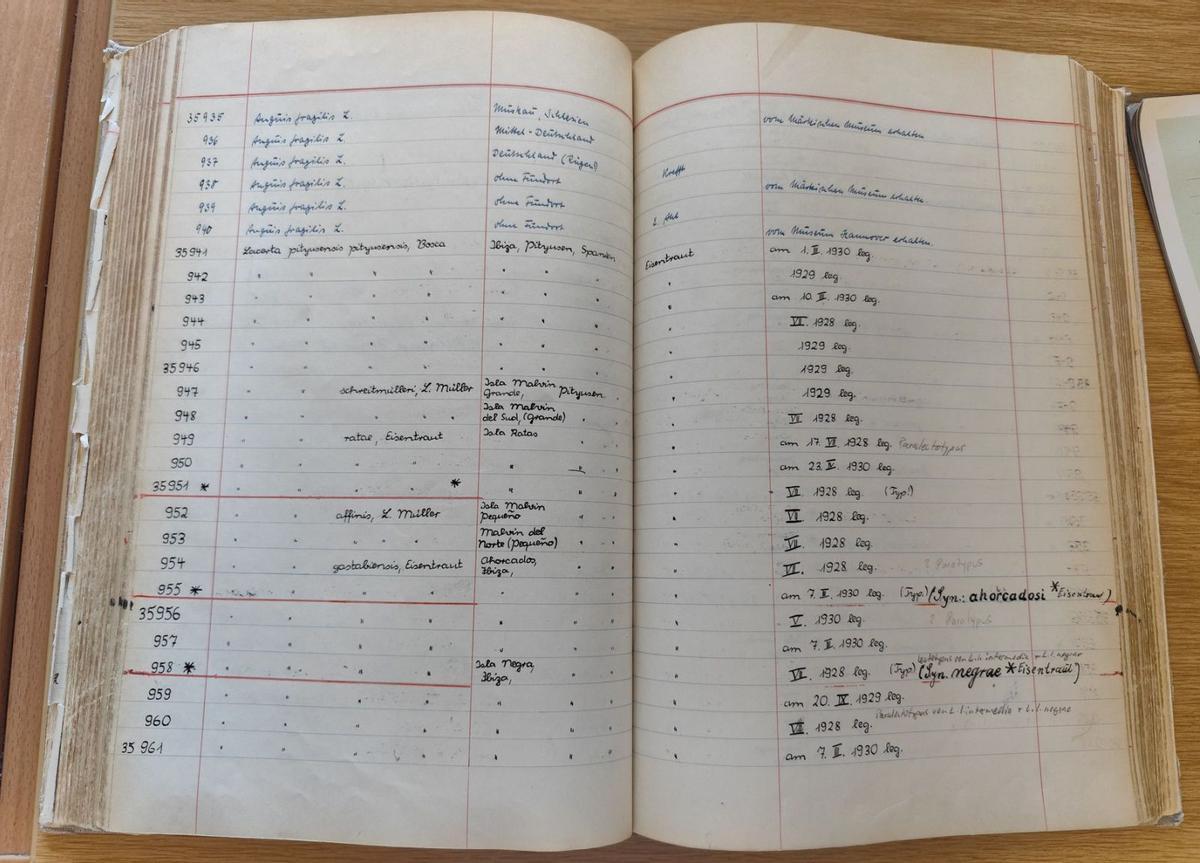 35935 Anguis fragilis L. Muskau, Schlesien vom Märkischen Museum erhalten
936 Anguis fragilis L. Mittel-Deutschland
937 Anguis fragilis L. Deutschland (Rügen) Krefft
938 Anguis fragilis L. ohne Fundort vom Märkischen Museum erhalten.
939 Anguis fragilis L. ohne Fundort
940 Anguis fragilis L. ohne Fundort vom Museum Hannover erhalten.
35941 Lacerta pityusensis pityusensis, Bosca Ibiza, Pityusen, Spanien Eisentraut am 1. II. 1930 leg.
942 " " " " " " " " 1929 leg.
943 " " " " " " " " am 10. II. 1930 leg.
944 " " " " " " " " VII. 1928 leg.
945 " " " " " " " " 1929 leg.
35946 " " " " " " " " 1929 leg.
947 " " schreitmülleri, L. Müller Isla Malvin Grande, Pityusen " " 1929 leg.
948 " " " " " Isla Malvin del Sud, (Grande) " " " VII 1928 leg.
949 " " ratae, Eisentraut Isla Ratas " " " am 17. VII 1928 leg. Paralectotypus
950 " " " " " " " " am 23. IV. 1930 leg.
35951 * " " " " * " " " " VII 1928 leg. (Typ!)
952 " " affinis, L. Müller Isla Malvin Pequeño " " " VII 1928 leg.
953 " " " " " Malvin del Norte (Pequeño) " " " VII. 1928 leg.
954 " " gastabiensis, Eisentraut Ahorcados, Ibiza, " " " VII. 1928 leg. ? Paratypus
955 * " " " " " " " " am 7. II. 1930 leg. (Typ.) (Syn.: ahorcadosi * Eisentraut)
35956 " " " " " " " " V. 1930 leg. ? Paratypus
957 " " " " " " " " am 7. II. 1930 leg.
958 * " " " " Isla Negra, Ibiza, " " " VII 1928 leg. (Typ) (Syn. negrae * Eisentraut)
959 " " " " " " " " am 20. IV. 1929 leg.
960 " " " " " " " " VII. 1928 leg.
35961 " " " " " " " " am 7. II. 1930 leg.